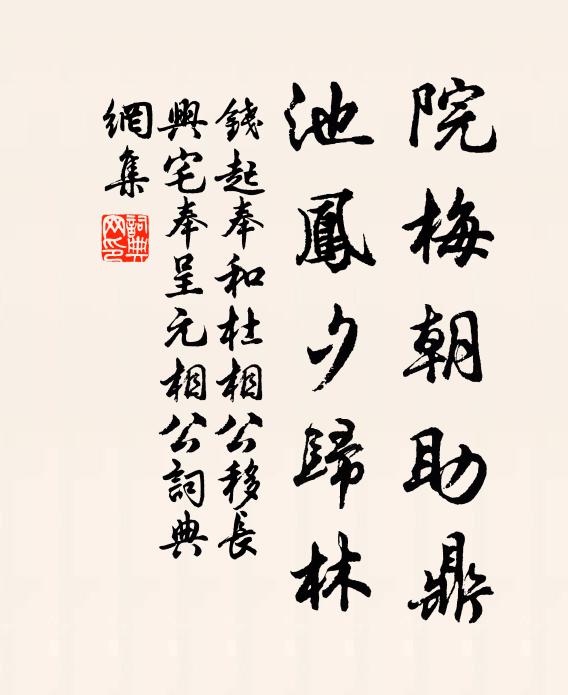 院梅朝助鼎
池鳳夕歸林
錢起奉和杜相公移長
興宅奉呈元相公詞典
網集
詞典網印